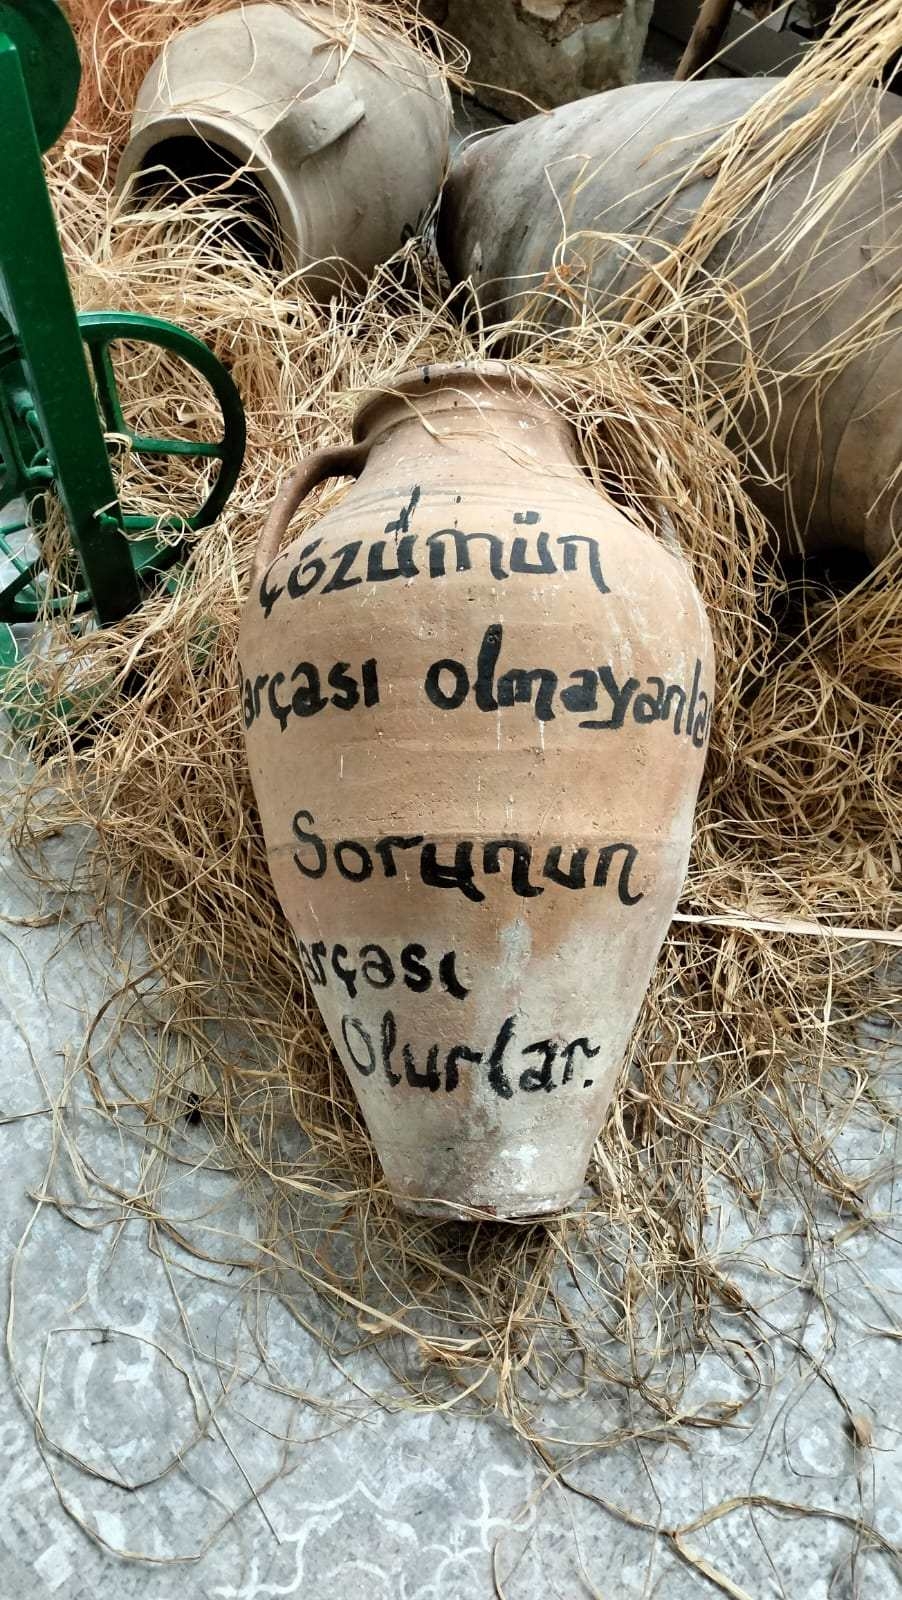 Çözümün
parçası olmayanlar
Sorunun
parçası
Olurlar.